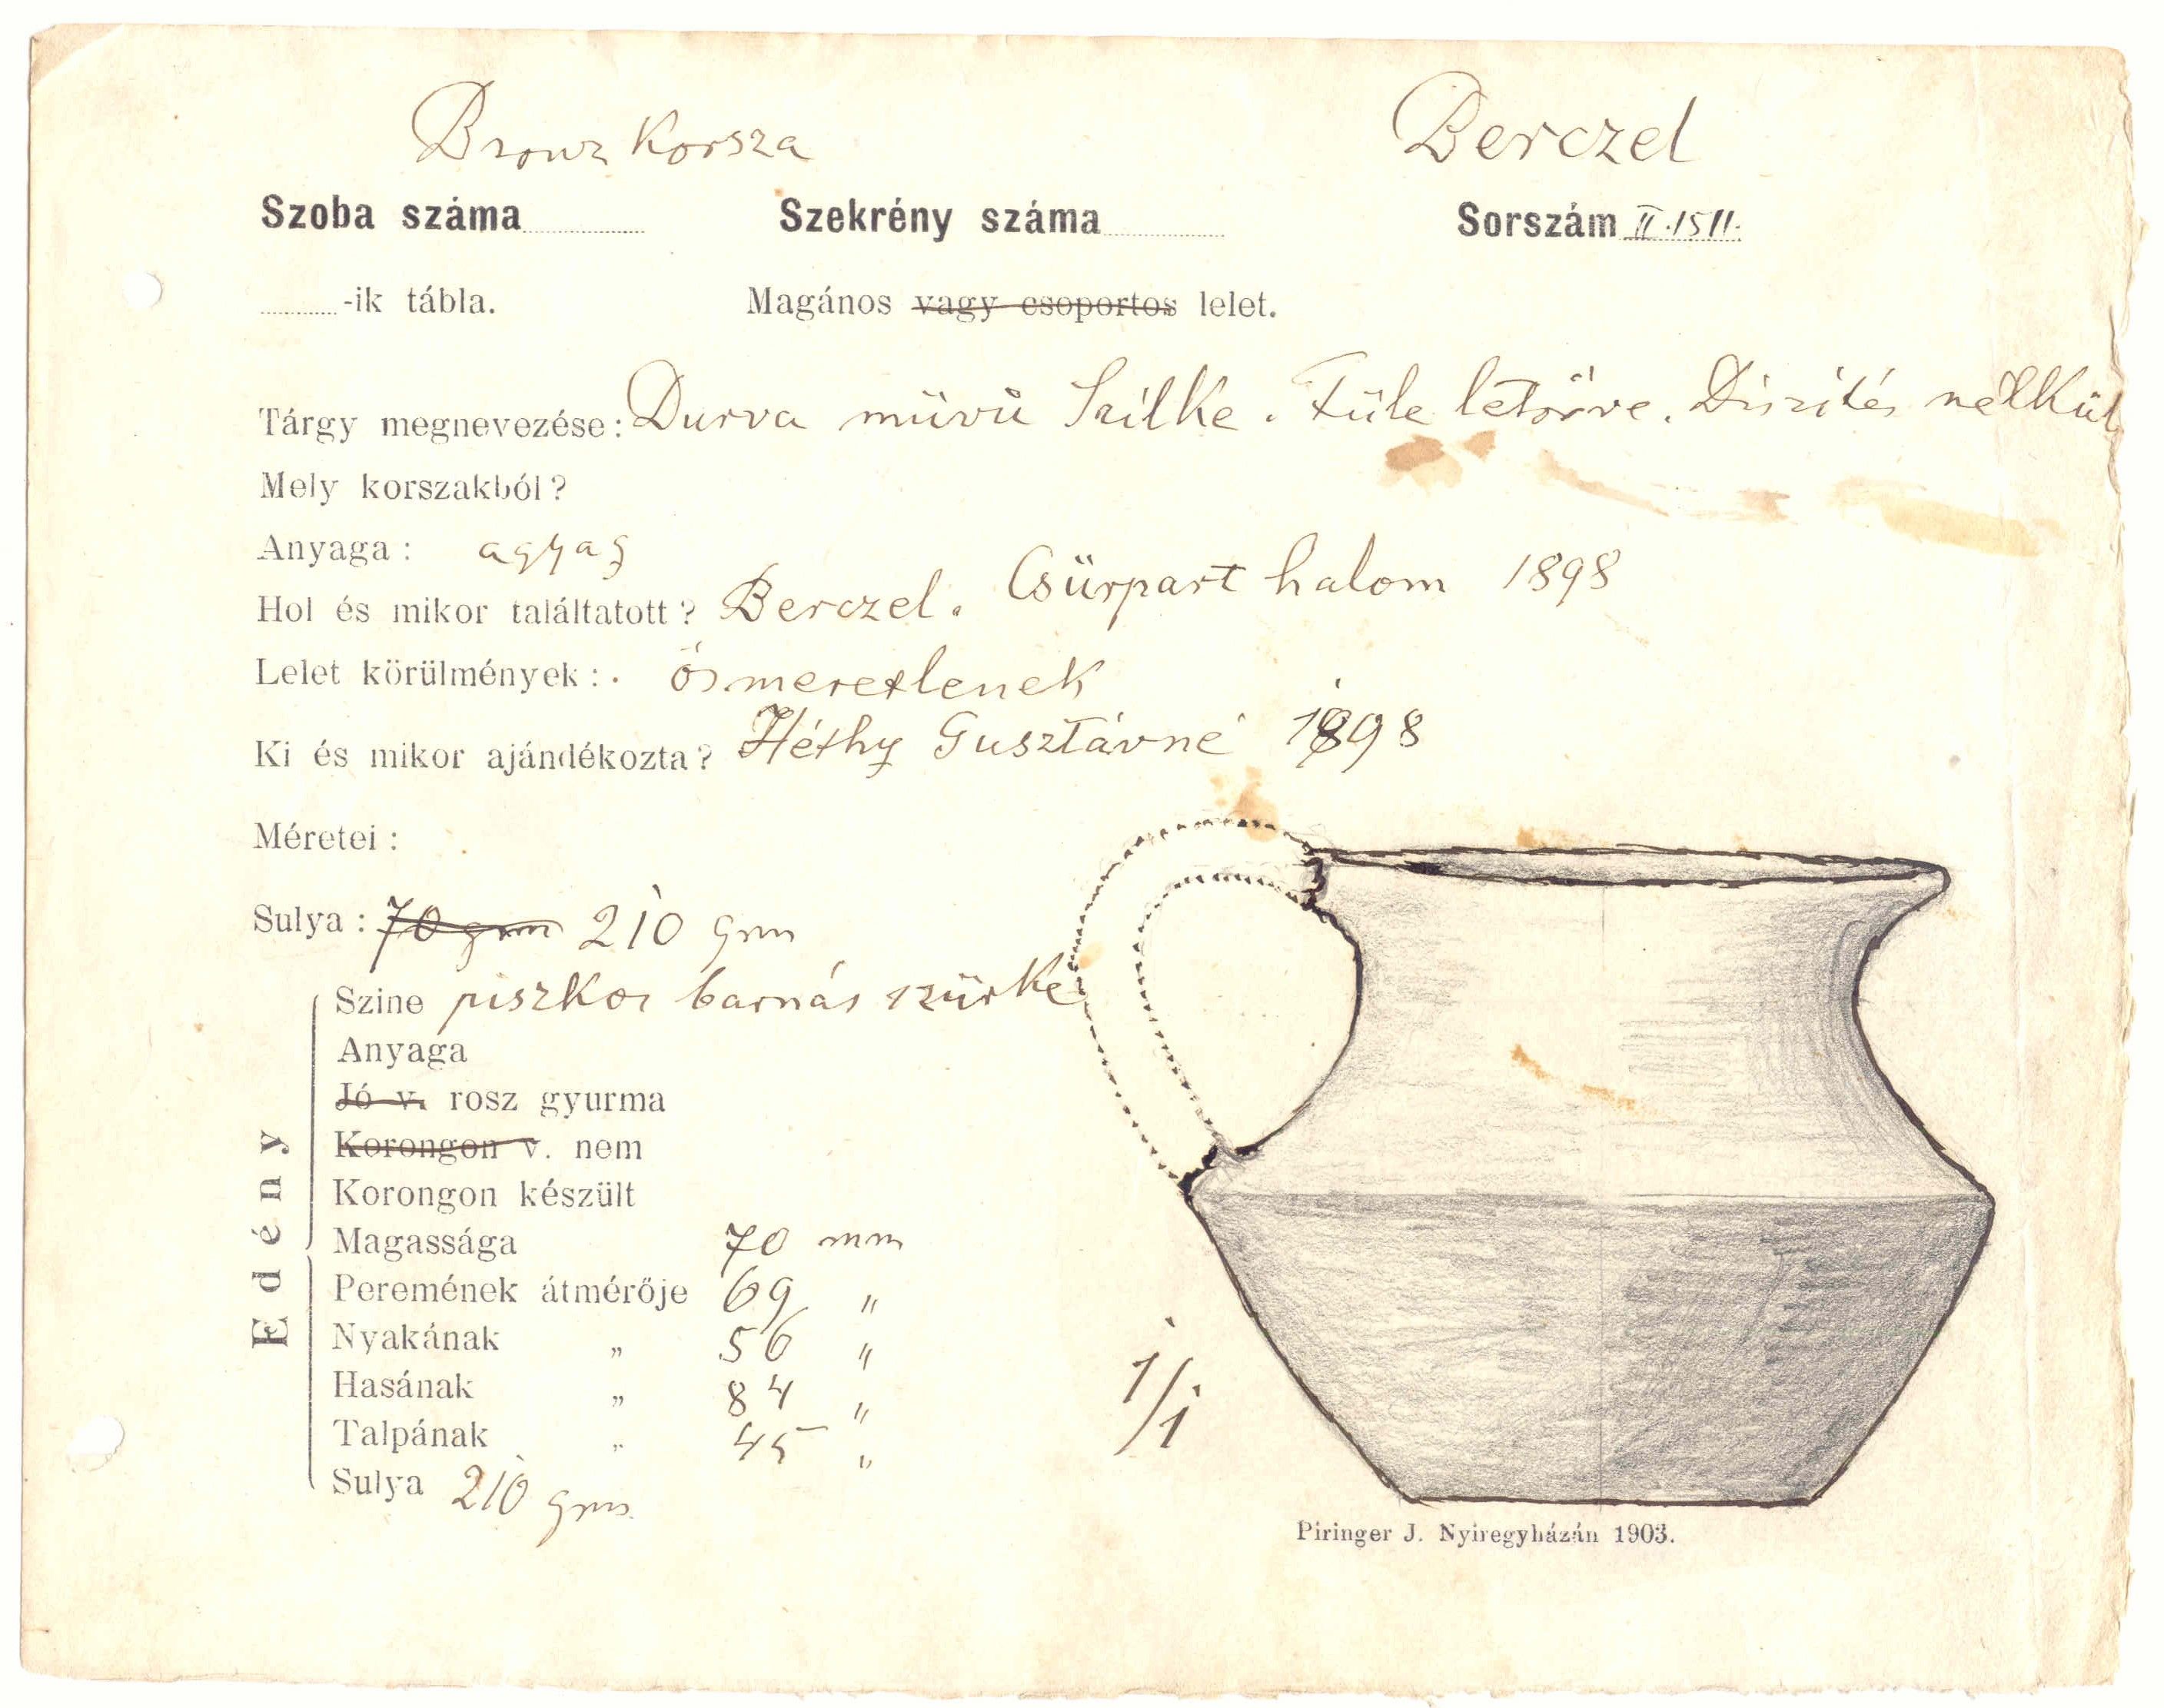 Bronz Korsza
Berczel
Szoba száma Szekrény száma Sorszám II.1511.
-ik tábla. Magános vagy csoportos lelet.
Tárgy megnevezése: Durva müvü Szilke. Füle letörve. Diszités nélkül
Mely korszakból?
Anyaga: agyag
Hol és mikor találtatott? Berczel. Csürpart halom 1898
Lelet körülmények: ösmeretlenek
Ki és mikor ajándékozta? Héthy Gusztávné 1898
Méretei:
Sulya: 70 grm 210 grm
Edény
Szine piszkos barnás szürke
Anyaga
Jó v. rosz gyurma
Korongon v. nem
Korongon készült
Magassága 70 mm
Peremének átmérője 69 "
Nyakának " 56 "
Hasának " 84 "
Talpának " 45 "
Sulya 210 grm
1/1
Piringer J. Nyiregyházán 1903.